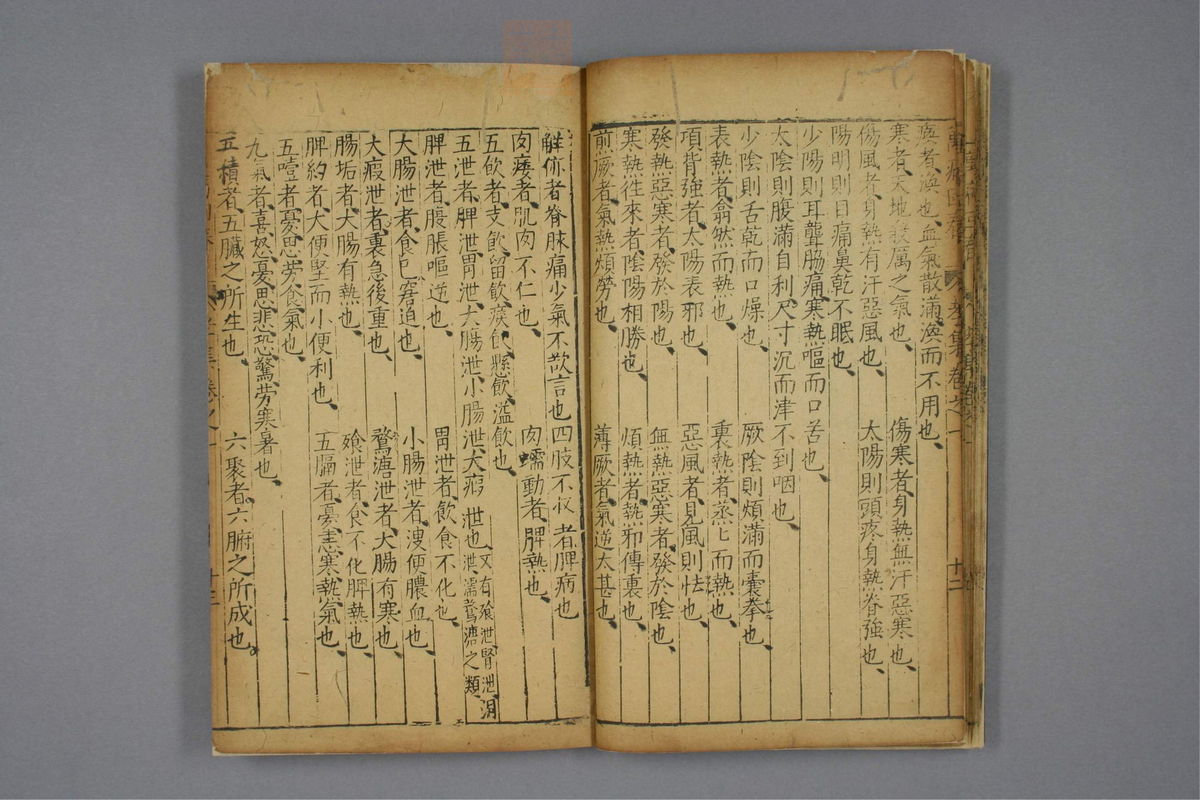 萬病回春 孝集卷之一 十二
痰者渙也、血氣散滿渙而不用也、
寒者、天地殺厲之氣也、 傷寒者、身熱無汗惡寒也、
傷風者、身熱有汗惡風也、 太陽則頭疼身熱脊強也、
陽明則目痛鼻乾不眠也、
少陽則耳聾脇痛、寒熱嘔而口苦也、
太陰則腹滿自利、尺寸沉而津不到咽也、
少陰則舌乾而口燥也、 厥陰則煩滿而囊拳也、
表熱者、翕然而熱也、 裏熱者、蒸〻而熱也、
項背強者、太陽表邪也、 惡風者、見風則怯也、
發熱惡寒者、發於陽也、 無熱惡寒者、發於陰也、
寒熱往來者、陰陽相勝也、 煩熱者、熱邪傳裏也、
煎厥者、氣熱煩勞也、 薄厥者、氣逆太甚也、
解㑊者、脊脉痛少氣不欬言也 四肢不收者、脾病也
肉痿者、肌肉不仁也、 肉蠕動者、脾熱也、
五飲者、支飲、留飲、痰飲、懸飲、溢飲也、
五泄者、脾泄、胃泄、大腸泄、小腸泄、大瘕泄也、又有飱泄、腎泄、洞泄、濡泄、鶩溏之類、
脾泄者、腹脹嘔逆也、 胃泄者、飲食不化也、
大腸泄者、食已窘迫也、 小腸泄者、溲便膿血也、
大瘕泄者、裏急後重也、 鶩溏泄者、大腸有寒也、
腸垢者、大腸有熱也、 飱泄者、食不化脾熱也、
脾約者、大便堅而小便利也、 五膈者、憂恚寒熱氣也、
五噎者、憂思勞食氣也、
九氣者、喜怒憂思悲恐驚勞寒暑也、
五積者、五臟之所生也、 六聚者、六腑之所成也、